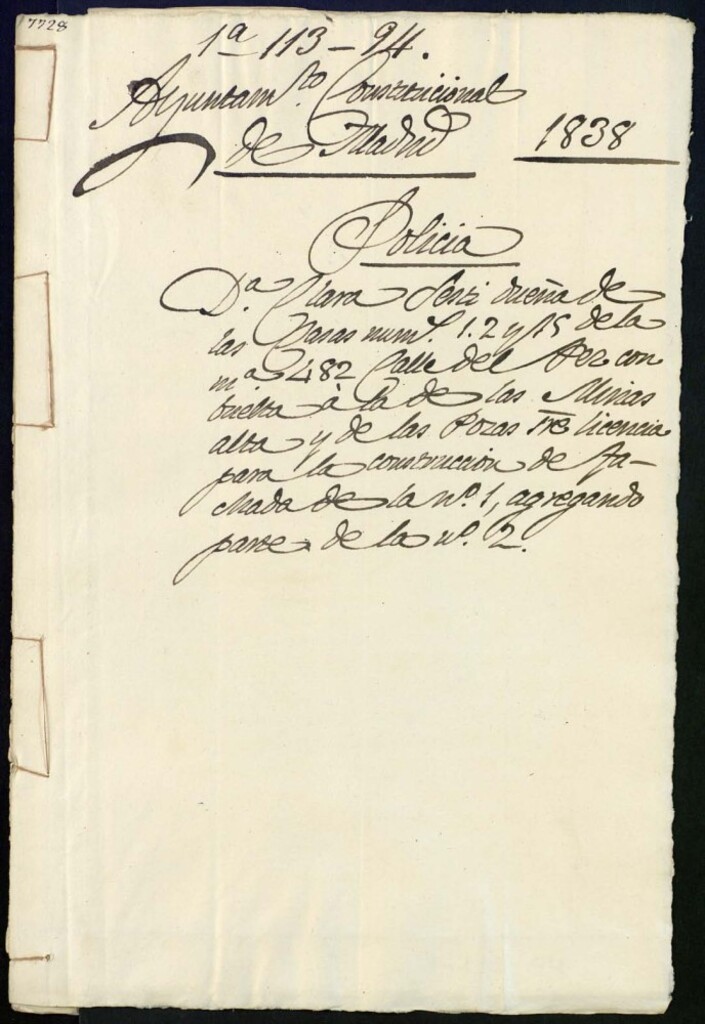 7728
1ª 113-94.
Ayuntamto. Constitucional
de Madrid 1838
Policia
D.ª Clara Sesti dueña de
las Casas num.s 1. 2 y 15 de la
m.ª 482 Calle del Pez con
buelta à la de las Minas
alta y de las Pozas licencia
para la construccion de fa-
chada de la nº. 1, agregando
parte de la nº. 2.